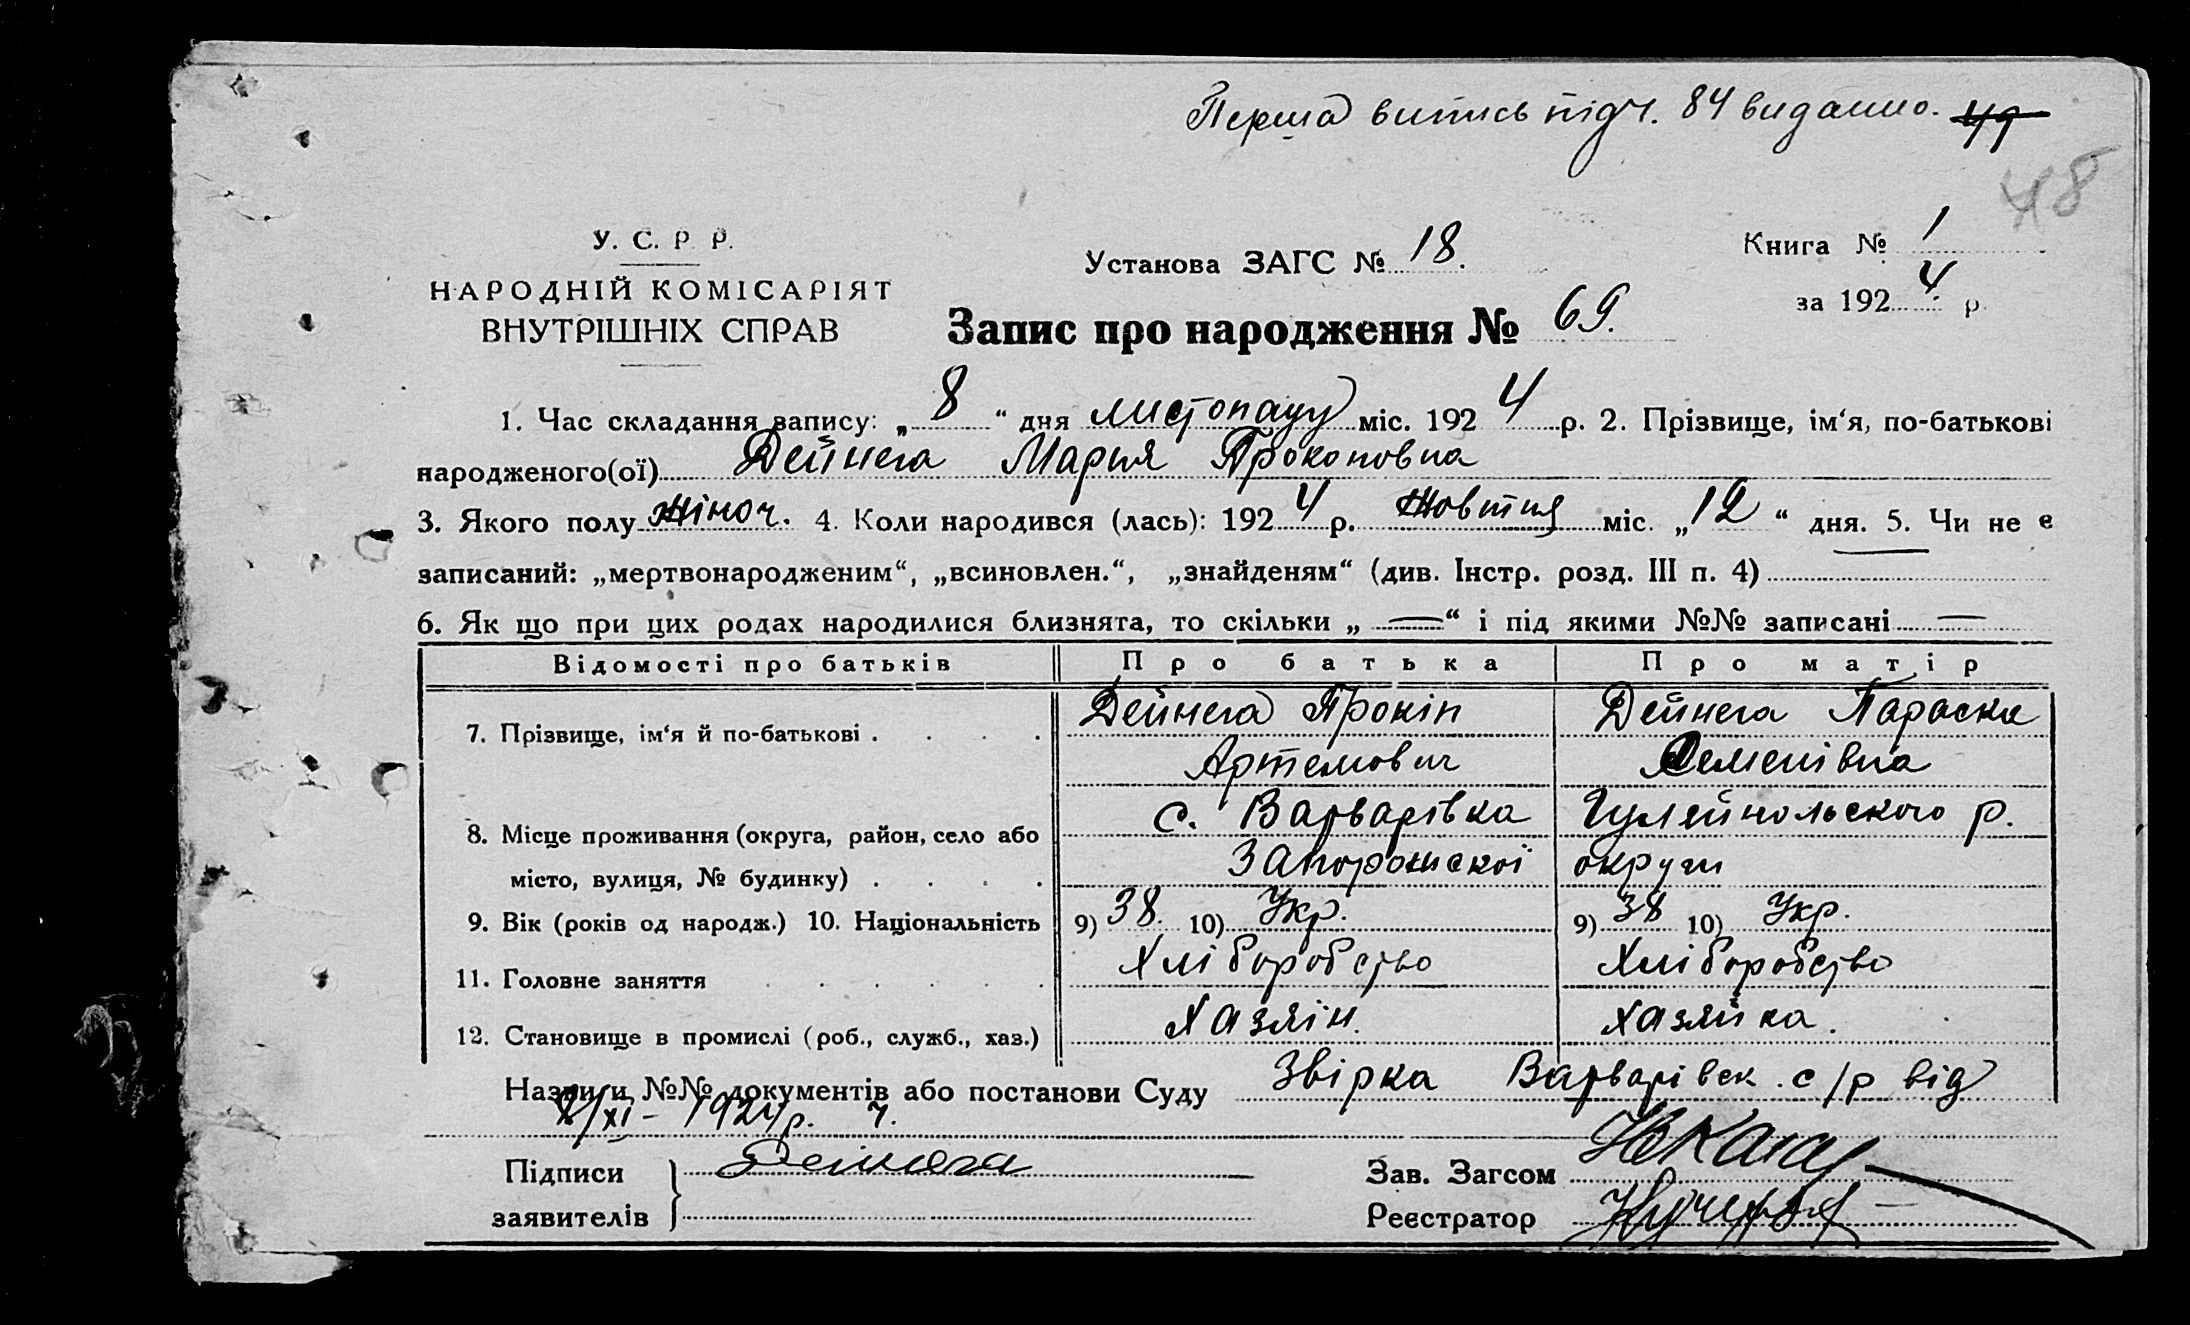 Перша витись під ч. 84 видашо. 49
48
У. С. Р. Р.
НАРОДНІЙ КОМІСАРІЯТ
ВНУТРІШНІХ СПРАВ
Установа ЗАГС № 18.
Книга № 1
за 1924 р.
Запис про народження № 69.
1. Час складання запису: „ 8 “ дня листопаду міс. 1924 р. 2. Прізвище, ім‘я, по-батькові
народженого(ої) Дейнега Марья Прокоповна
3. Якого полу жіноч. 4. Коли народився (лась): 1924 р. Жовтня міс. „ 12 “ дня. 5. Чи не є
записаний: „мертвонародженим“, „всиновлен.“, „знайденям“ (див. Інстр. розд. III п. 4) —
6. Як що при цих родах народилися близнята, то скільки „ — “ і під якими №№ записані —
Відомості про батьків Про батька Про матір
7. Прізвище, ім‘я й по-батькові . . . . Дейнега Прокіп Дейнега Параска
Артемович Семенівна
с. Варварівка Гуляйпольского р.
8. Місце проживання (округа, район, село або
Запорожскої округи
місто, вулиця, № будинку) . . . .
9. Вік (років од народж.) 10. Національність 9) 38. 10) Укр. 9) 38 10) Укр.
11. Головне заняття . . . . . . Хліборобство Хліборобство
12. Становище в промислі (роб., служб., хаз.) Хазяін. Хазяйка.
Назви и №№ документів або постанови Суду Звірка Варварівск. с/р від
8/XI – 1924 р. ч.
Підписи
заявителів } Дейнега
Зав. Загсом
Реєстратор